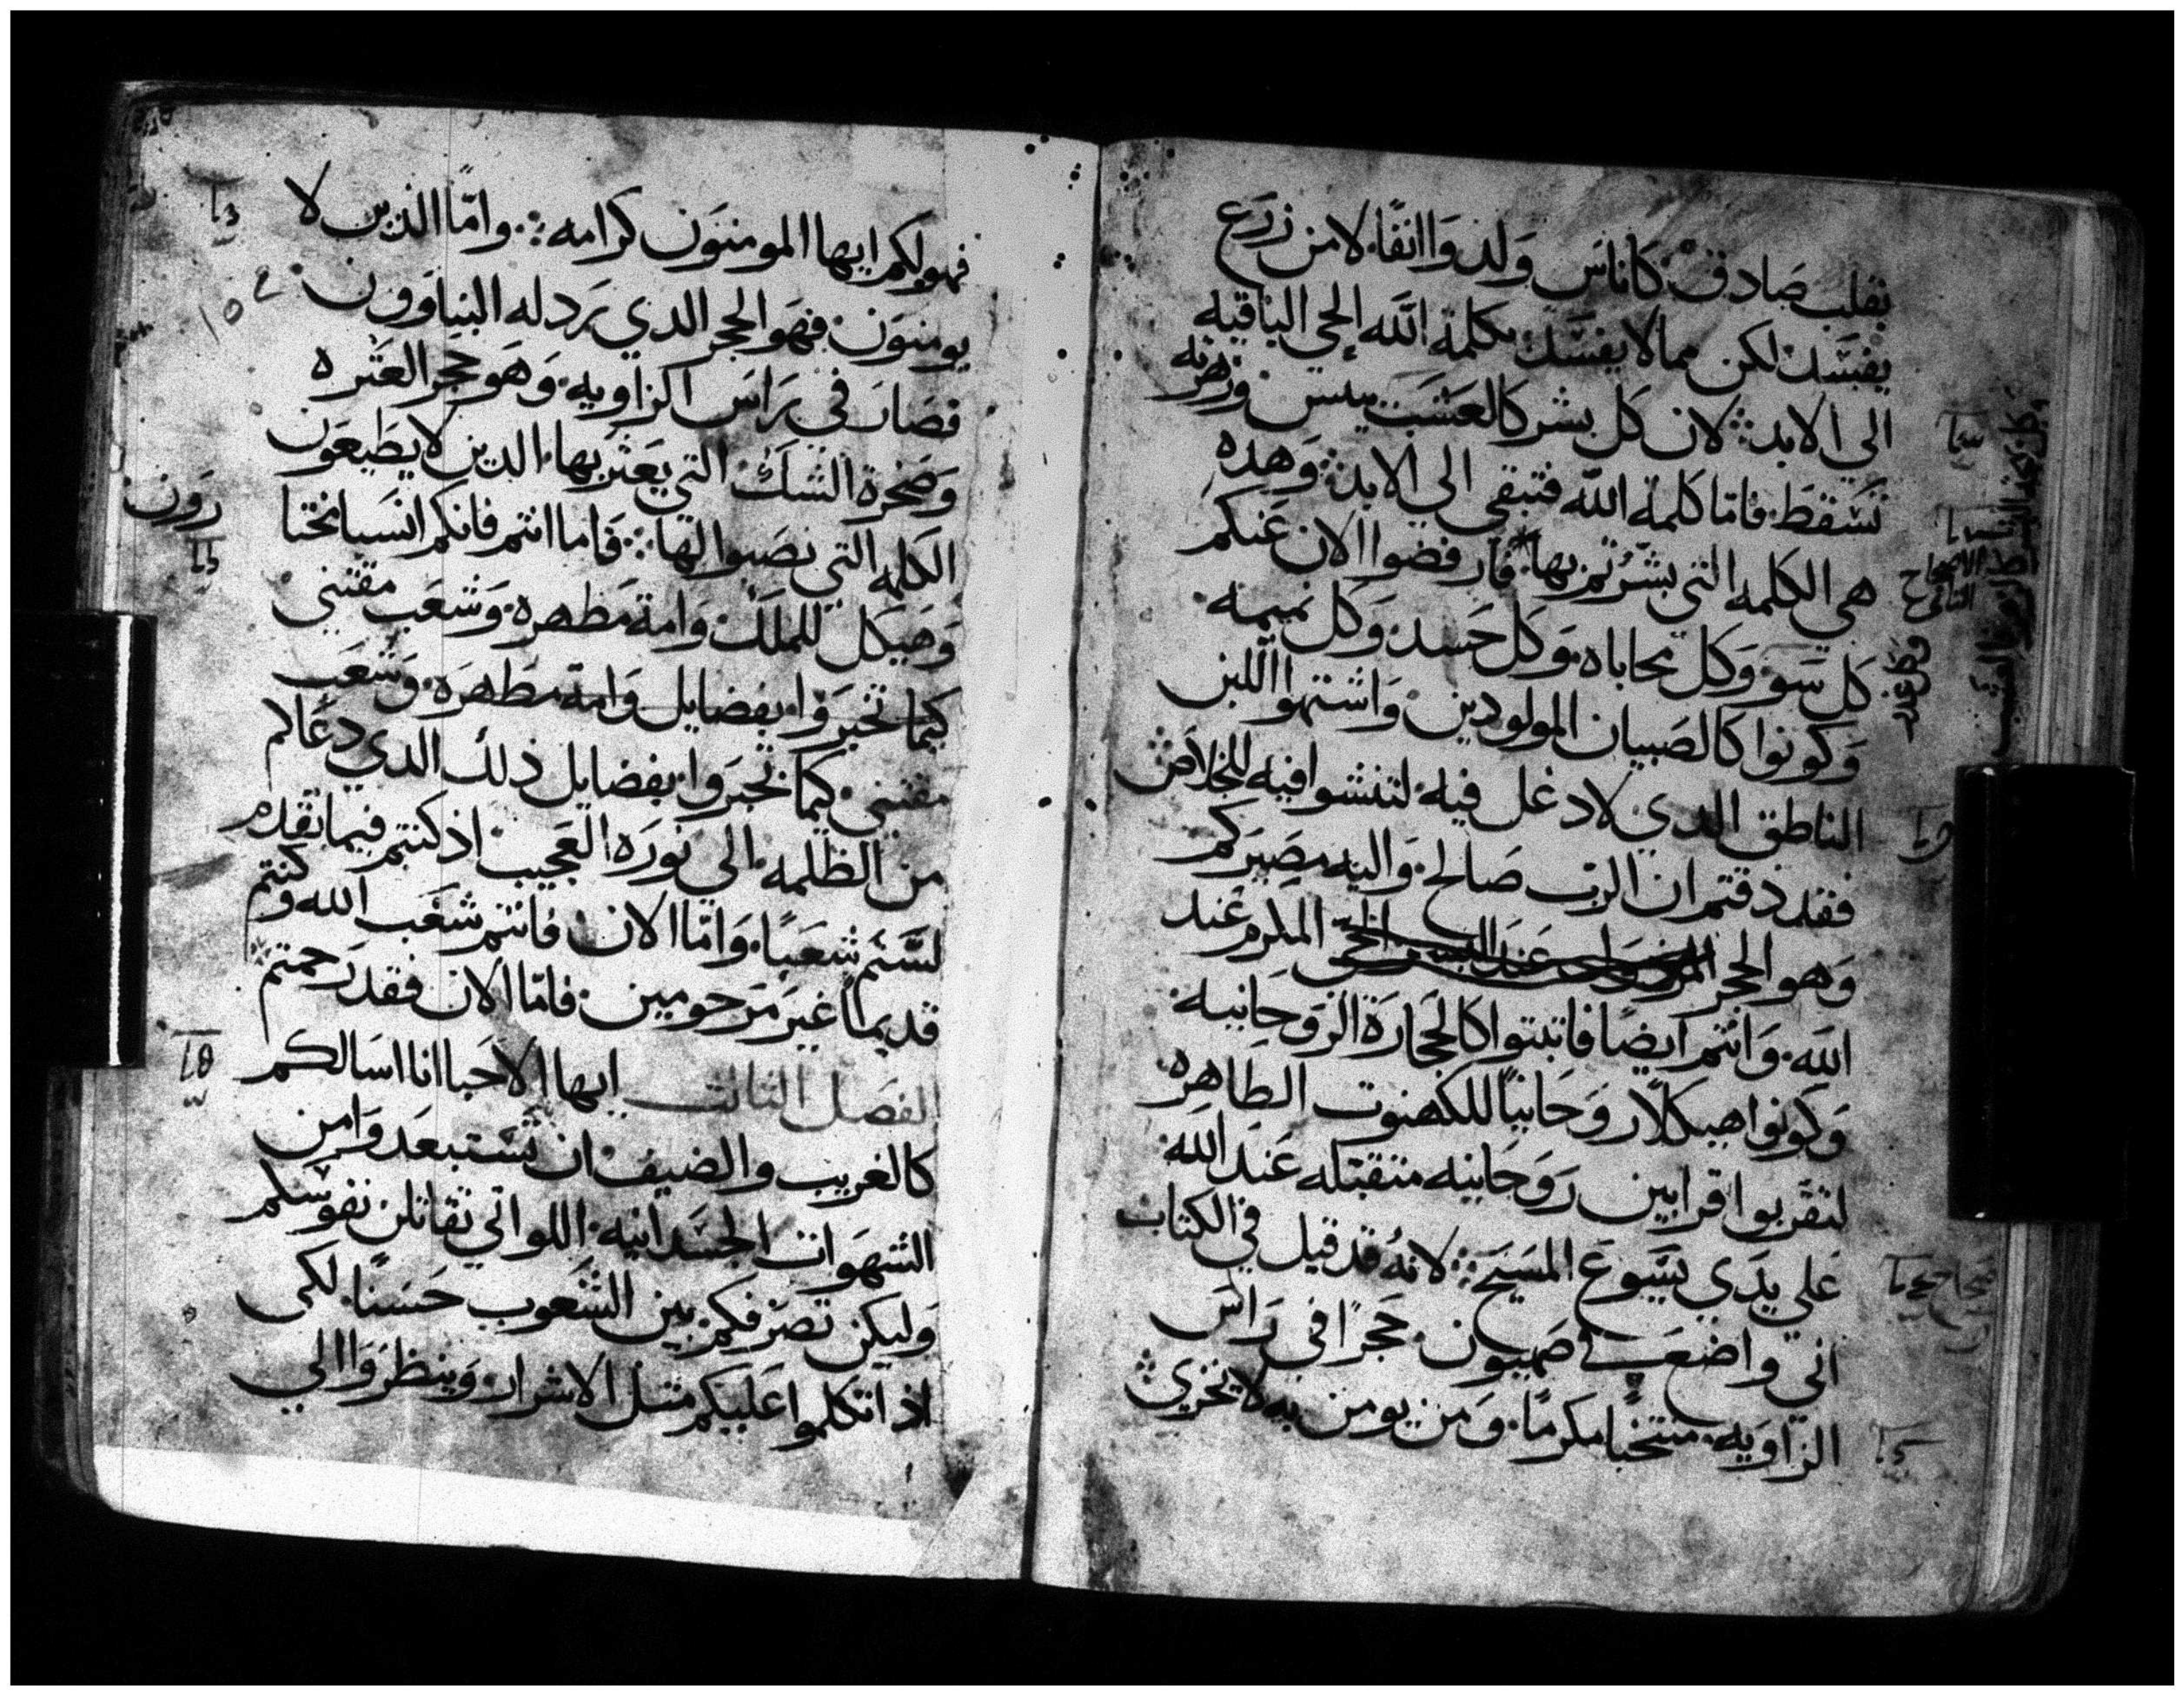 بقلب صادق كاناس ولدوا انفًا لا من زرع
يفسد لكن مما لا يفسد بكلمة الله الحي الباقيه
الي الابد لان كل بشر كالعشب ييبس وزهرته
تسقط فاما كلمة الله فتبقي الي الابد وهده
هي الكلمه التي بشرتم بها فارفضوا الان عنكم
كل سو وكل محاباه وكل حسد وكل نميمه
وكونوا كالصبيان المولودين واشتهوا اللبن
الناطق الدي لا دغل فيه لتنشوا فيه للخلاص
فقد دقتم ان الرب صالح واليه مصيركم
وهو الحجر المكرم عند
الله وانتم ايضًا فاتبتوا كالحجارة الروحانيه
وكونوا هيكلا روحانيًا للكهنوت الطاهره
لتقربوا قرابين روحانيه متقبله عند الله
علي يدي يسوع المسيح لانه قد قيل في الكتاب
اني واضع في صهيون حجرًا في راس
الزاويه منتخبا مكرمًا ومن يومن به لا يخزي
الاصحاح
الثاني
فهو لكم ايها المومنون كرامه وامّا الذين لا
يومنون فهو الحجر الدي يرد له البناوون
فصار في راس الزاويه وهو حجر العثره
وصخرة الشك التي يعثر بها الدين لا يطيعون
الكلمه التي نصبوا لها فاما انتم فانكم انسبا مختا
رون
وهيكل للملك وامة مطهره وشعب مقتني
كيما تخبروا بفضايل وامة مطهره وشعب
مقتني كيما تخبروا بفضايل دلك الدي دعاكم
من الظلمه الي نوره العجيب اذ كنتم فيما تقدم
لستم شعبًا واما الان فانتم شعب الله وكنتم
قديمًا غير مرحومين فاما الان فقد رحمتم
الفصل الثالث ايها الاحبا انا اسالكم
كالغريب والضيف ان تستبعدوا من
الشهوات الجسدانيه اللواتي تقاتلن نفوسكم
وليكن تصرفكم بين الشعوب حسنًا لكي
اذا تكلموا عليكم مثل الاشرار وينظروا الي